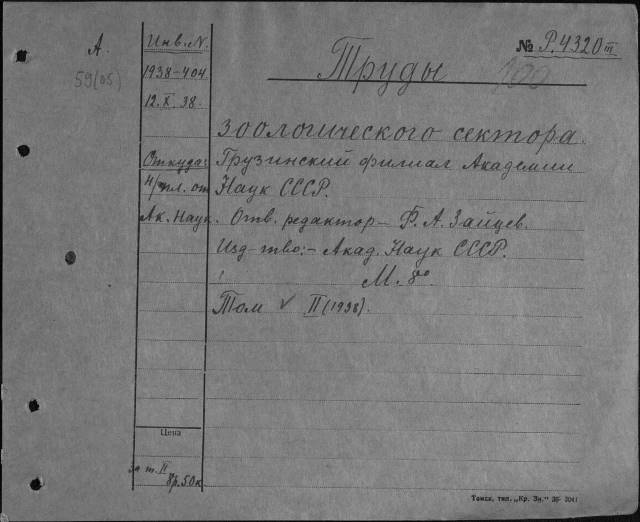 А.
59(05)
Инв. N.
1938-404.
12.X.38.
№ Р.4320 III
Труды
зоологического сектора.
Откуда: Грузинский филиал Академии
н/пл. от Наук СССР.
Ак. Наук. Отв. редактор – Ф. А. Зайцев.
Изд-тво:- Акад. Наук СССР.
М. 8°
Том V II (1938).
Цена
за т. II
8р.50к
Томск, тип. „Кр. Зн."